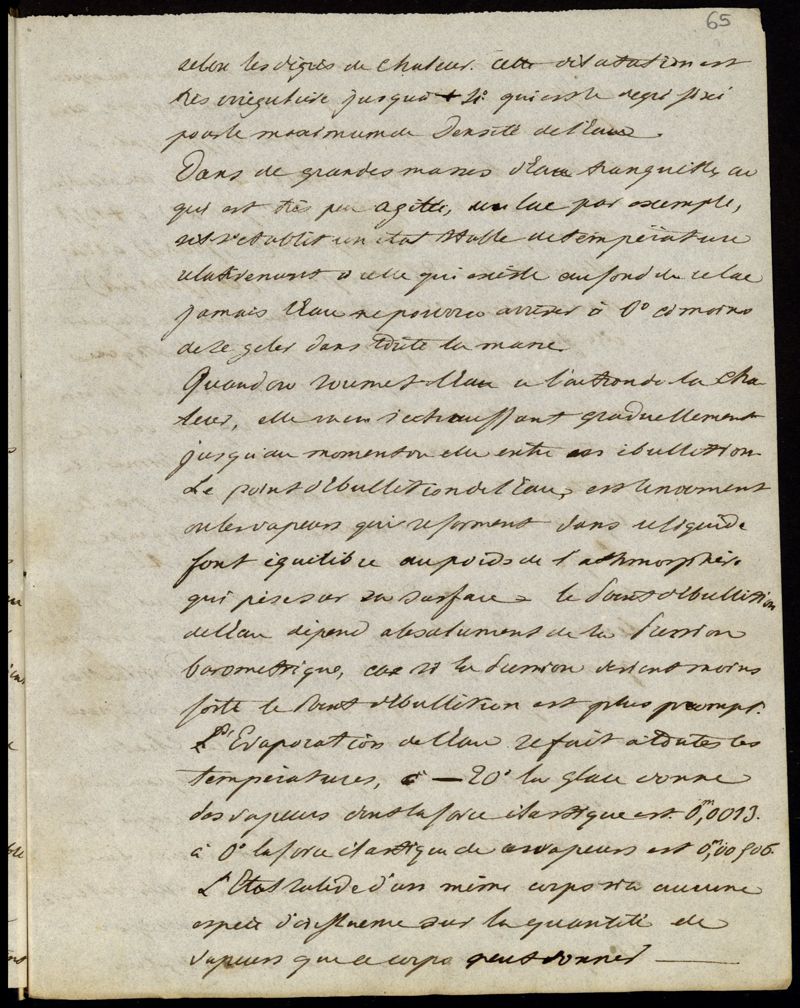 65
selon les dégrés de chaleur. Cette dilatation est
très irrégulière jusqu'à + 4° qui est le degré fixé
pour le maximum de Densité de l'Eau.
Dans de grandes masses d'Eau tranquilles ou
qui est très peu agitée, un lac par exemple,
il s'etablit un état stable de température
relativement à celle qui existe au fond de ce lac
jamais l'Eau ne pourra arriver à 0° à moins
de se geler dans toute la masse
Quand on soumet l'Eau à l'action de la cha-
leur, elle va en s'échauffant graduellement
jusqu'au moment ou elle entre en ébullition
Le point d'ébullition de l'Eau, est le moment
ou les vapeurs qui se forment dans ce liquide
font équilibre au poids de l'athmosphère
qui pèse sur sa surface = le Point d'ébullition
de l'Eau dépend absolument de la Pression
barométrique, car si la Pression devient moins
forte le Point d'ébullition est plus prompt.
L'Evaporation de l'Eau se fait à toutes les
températures, à — 20° la glace donne
des vapeurs dont la force élastique est 0m,0013.
à 0° la force élastique de ces vapeurs est 0m,00506.
L'Etat solide d'un même corps n'a aucune
espèce d'influence sur la quantité de
vapeurs que ce corps peut donner —